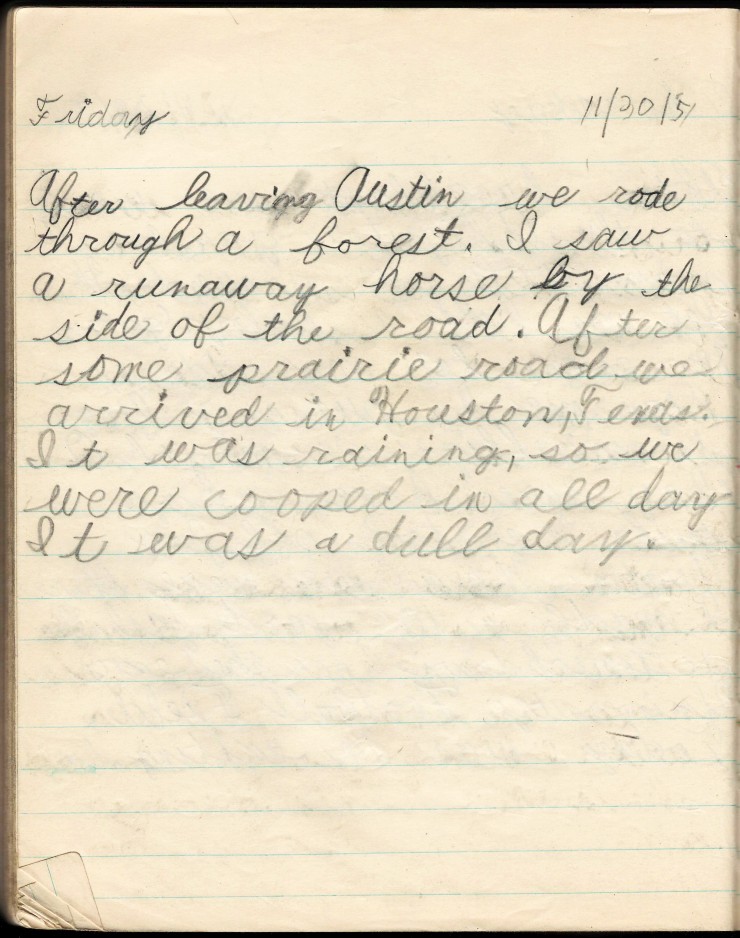 Friday 11/30/51
After leaving Austin we rode
through a forest. I saw
a runaway horse by the
side of the road. After
some prairie road we
arrived in Houston, Texas.
It was raining, so we
were cooped in all day
It was a dull day.